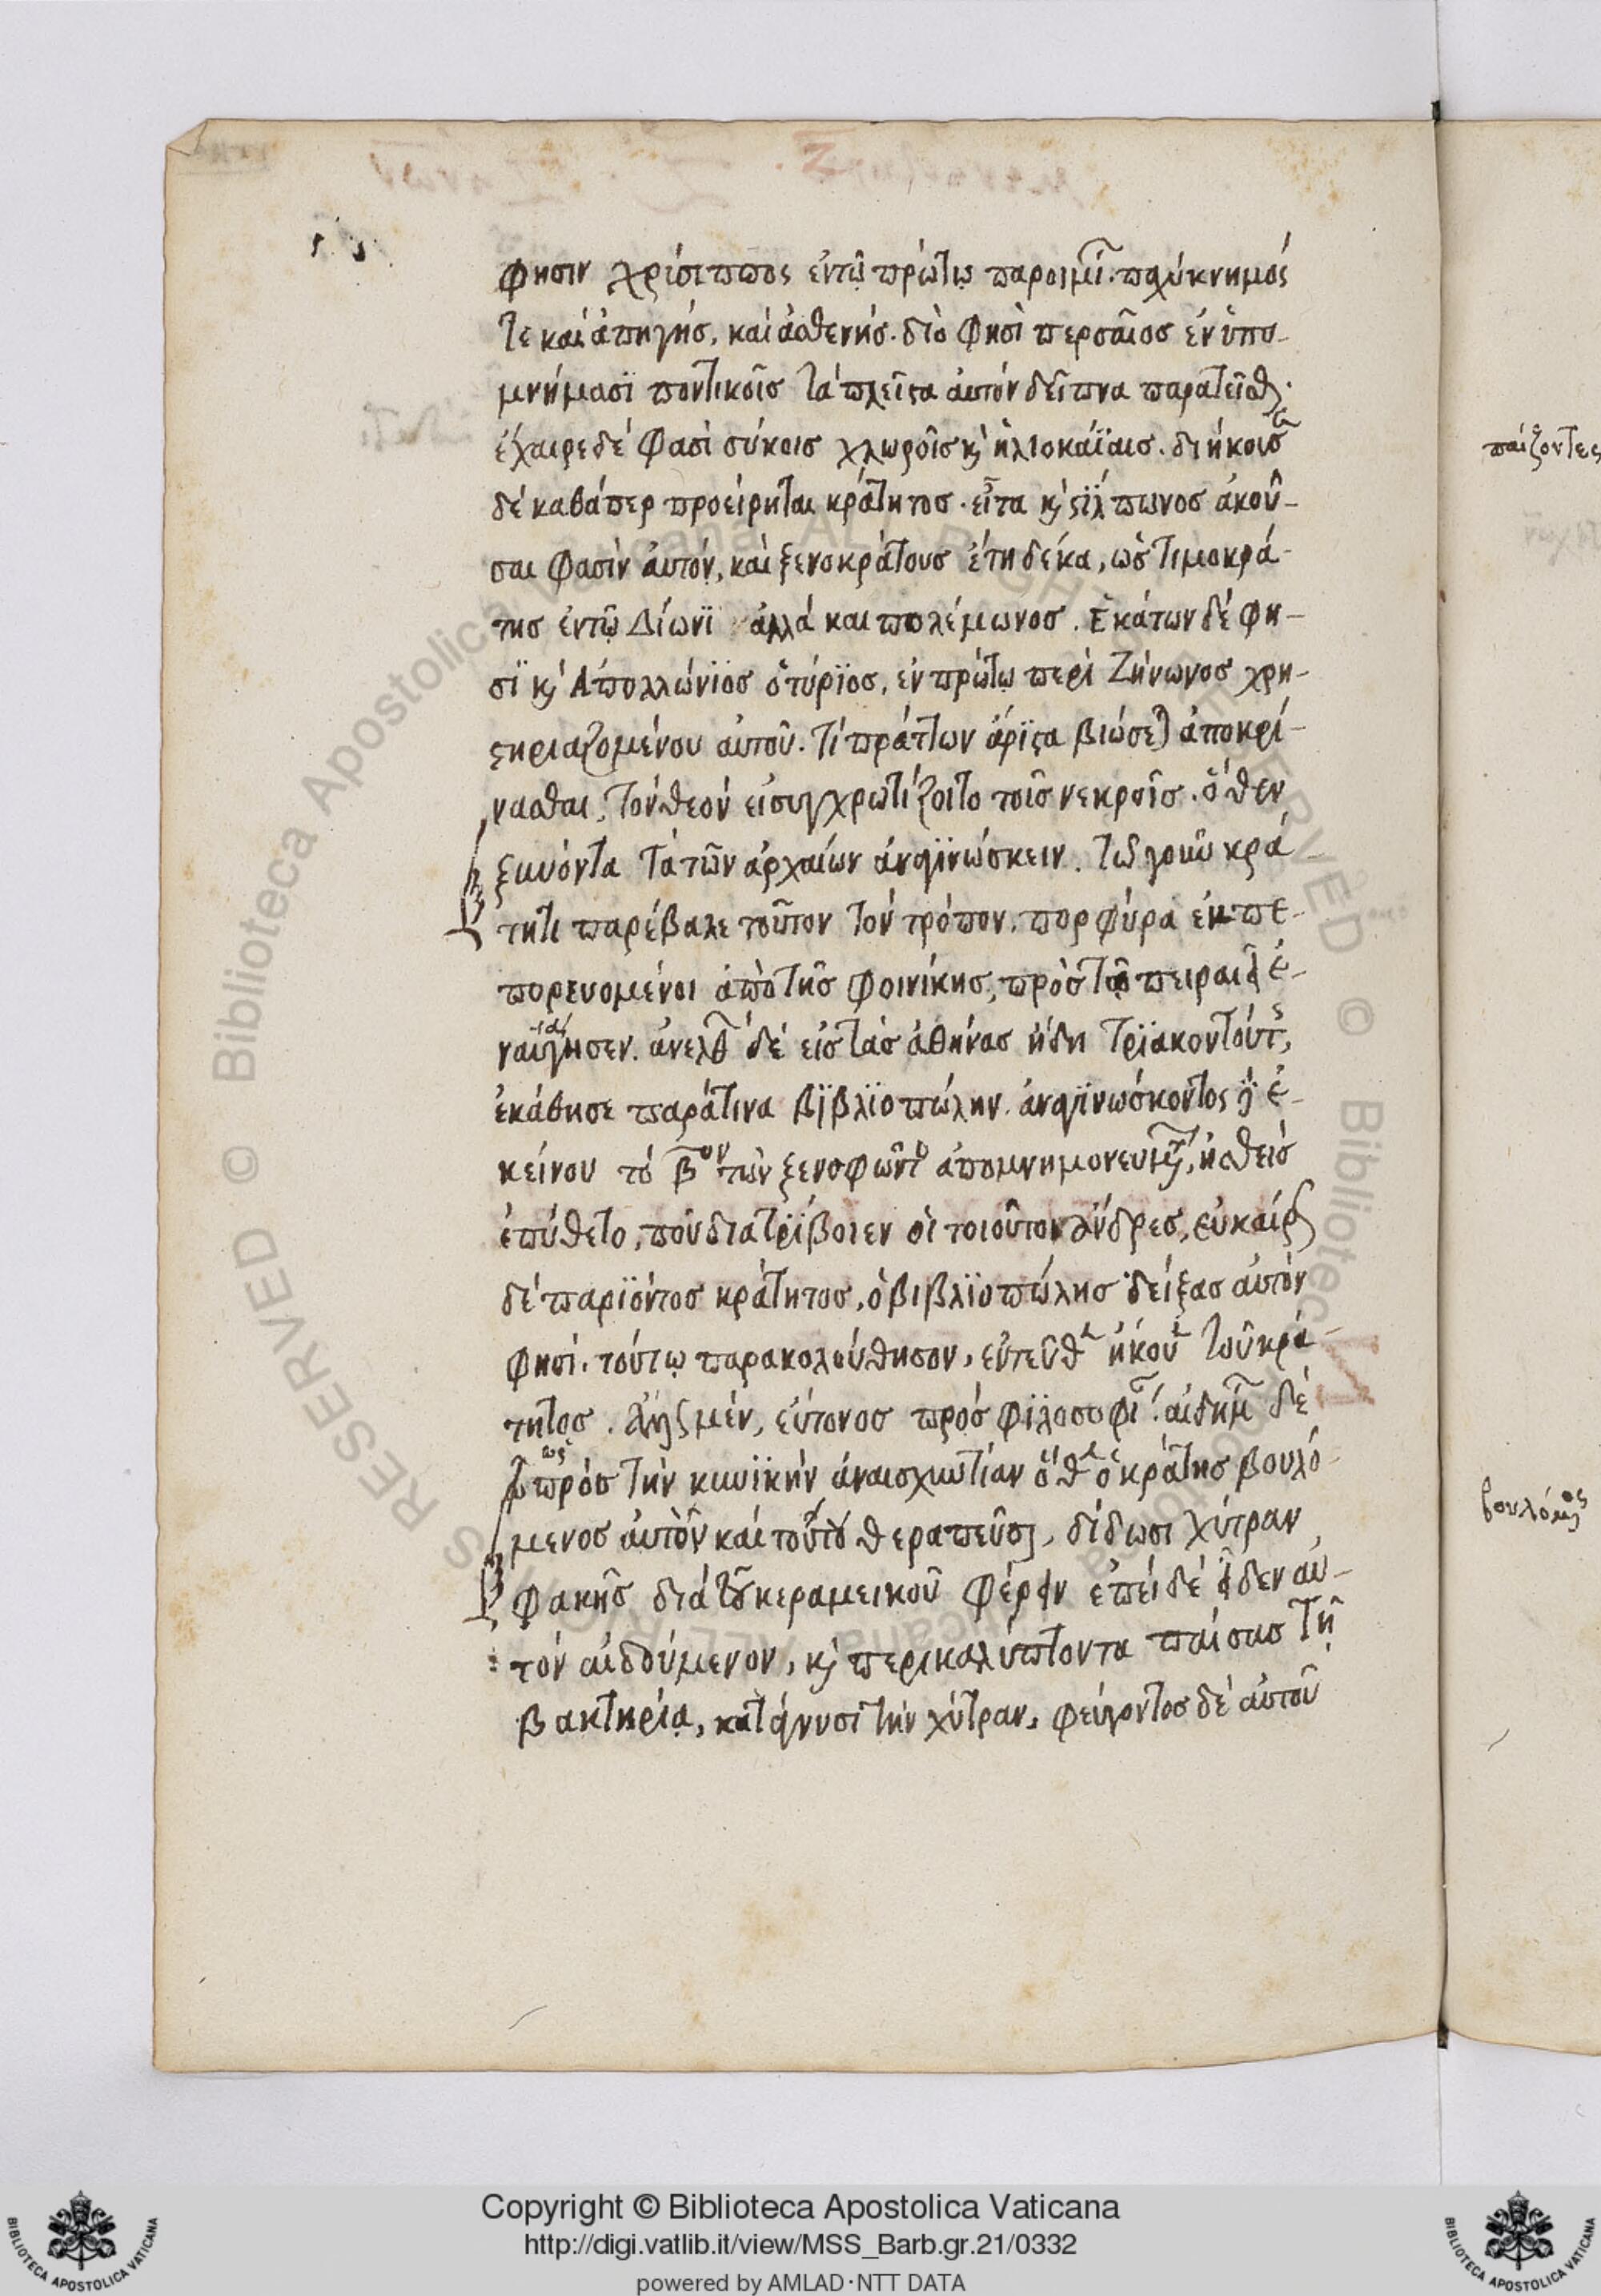 φησιν χρύσιππος ἐν τῶ πρώτω παροιμῖ. παχύκνημός
τε καὶ ἀπηγής, καὶ ἀσθενής. διὸ φησὶ περσαῖος ἐν ὑπο-
μνήμασϊ ποντικοῖς τὰ πλεῖστα αὐτὸν δεῖπνα παρατεῖσθ.
ἔχαιρε δέ φασὶ σύκοις χλωροῖς κ ἡλιοκάϊαις. διήκουσ
δὲ καθάπερ προείρηται κράτητος. εἶτα κ στϊλπωνος ἀκοῦ-
σαι φασὶν αὐτόν, καὶ ξενοκράτους ἔτη δέκα, ὡς τιμοκρά-
της ἐν τῶ Δίωνϊ ἀλλὰ και πολέμωνος. Ἑκάτων δέ φη-
σϊ κ Ἀπολλώνϊος ὁ τύρϊος, ἐν πρώτω περὶ Ζήνωνος χρη-
στηριαζομένου αὐτοῦ. τί πράττων ἄρϊστα βιώσετ ἀποκρί-
νασθαι, τὸν θεὸν εἰ συγχρωτίζοιτο τοῖς νεκροῖς. ὅθεν
ξυνόντα τὰ τῶν ἀρχαίων ἀναγϊνώσκειν. τῶ γοῦν κρά-
τητι παρέβαλε τοῦτον τὸν τρόπον. πορφύρα ἐμπε-
πορευμένοι ἀπὸ τῆς φοινίκης, πρὸς τῶ πειραιεῖ ἐ-
ναυάγησεν. ἀνελθ δὲ εἰς τὰς ἀθήνας ἤδη τρϊακοντούτ,
ἐκάθησε παράτινα βϊβλϊοπώλην. ἀναγϊνώσκοντος δ ἐ-
κείνου τὸ βον τῶν ξενοφῶντο ἀπομνημονευμ, ἡσθεὶς
ἐπύθετο, ποῦ διατρίβοιεν οἱ τοιοῦτον ἄνδρες, εὐκαίρ
δὲ παρϊόντος κράτητος, ὁ βιβλϊοπώλης δείξας αὐτὸν
φησί. τούτω παρακολούθησον, ἐντεῦθ ἤκου τοῦ κρά-
τητος. ἄλλς μὲν, εὔτονος πρὸς φϊλοσοφί. αἰδήμ δὲ
ὡς πρὸς τὴν κυνϊκὴν ἀναισχυντίαν ὅθ ὁ κράτης βουλό-
μενος αὐτὸν καὶ τοῦτο θεραπεῦσ, δίδωσι χύτραν
φακῆς διὰ τοῦ κεραμεικοῦ φέρειν ἐπεὶ δὲ εἶδεν αὐ-
τὸν αἰδούμενον, κ περικαλύπτοντα παίσας τῆ
βακτηρία, κατάγνυσι τὴν χύτραν, φεύγοντος δὲ αὐτοῦ
παίζοντες
βουλόμς
Copyright © Biblioteca Apostolica Vaticana
http://digi.vatlib.it/view/MSS_Barb.gr.21/0332
powered by AMLAD·NTT DATA